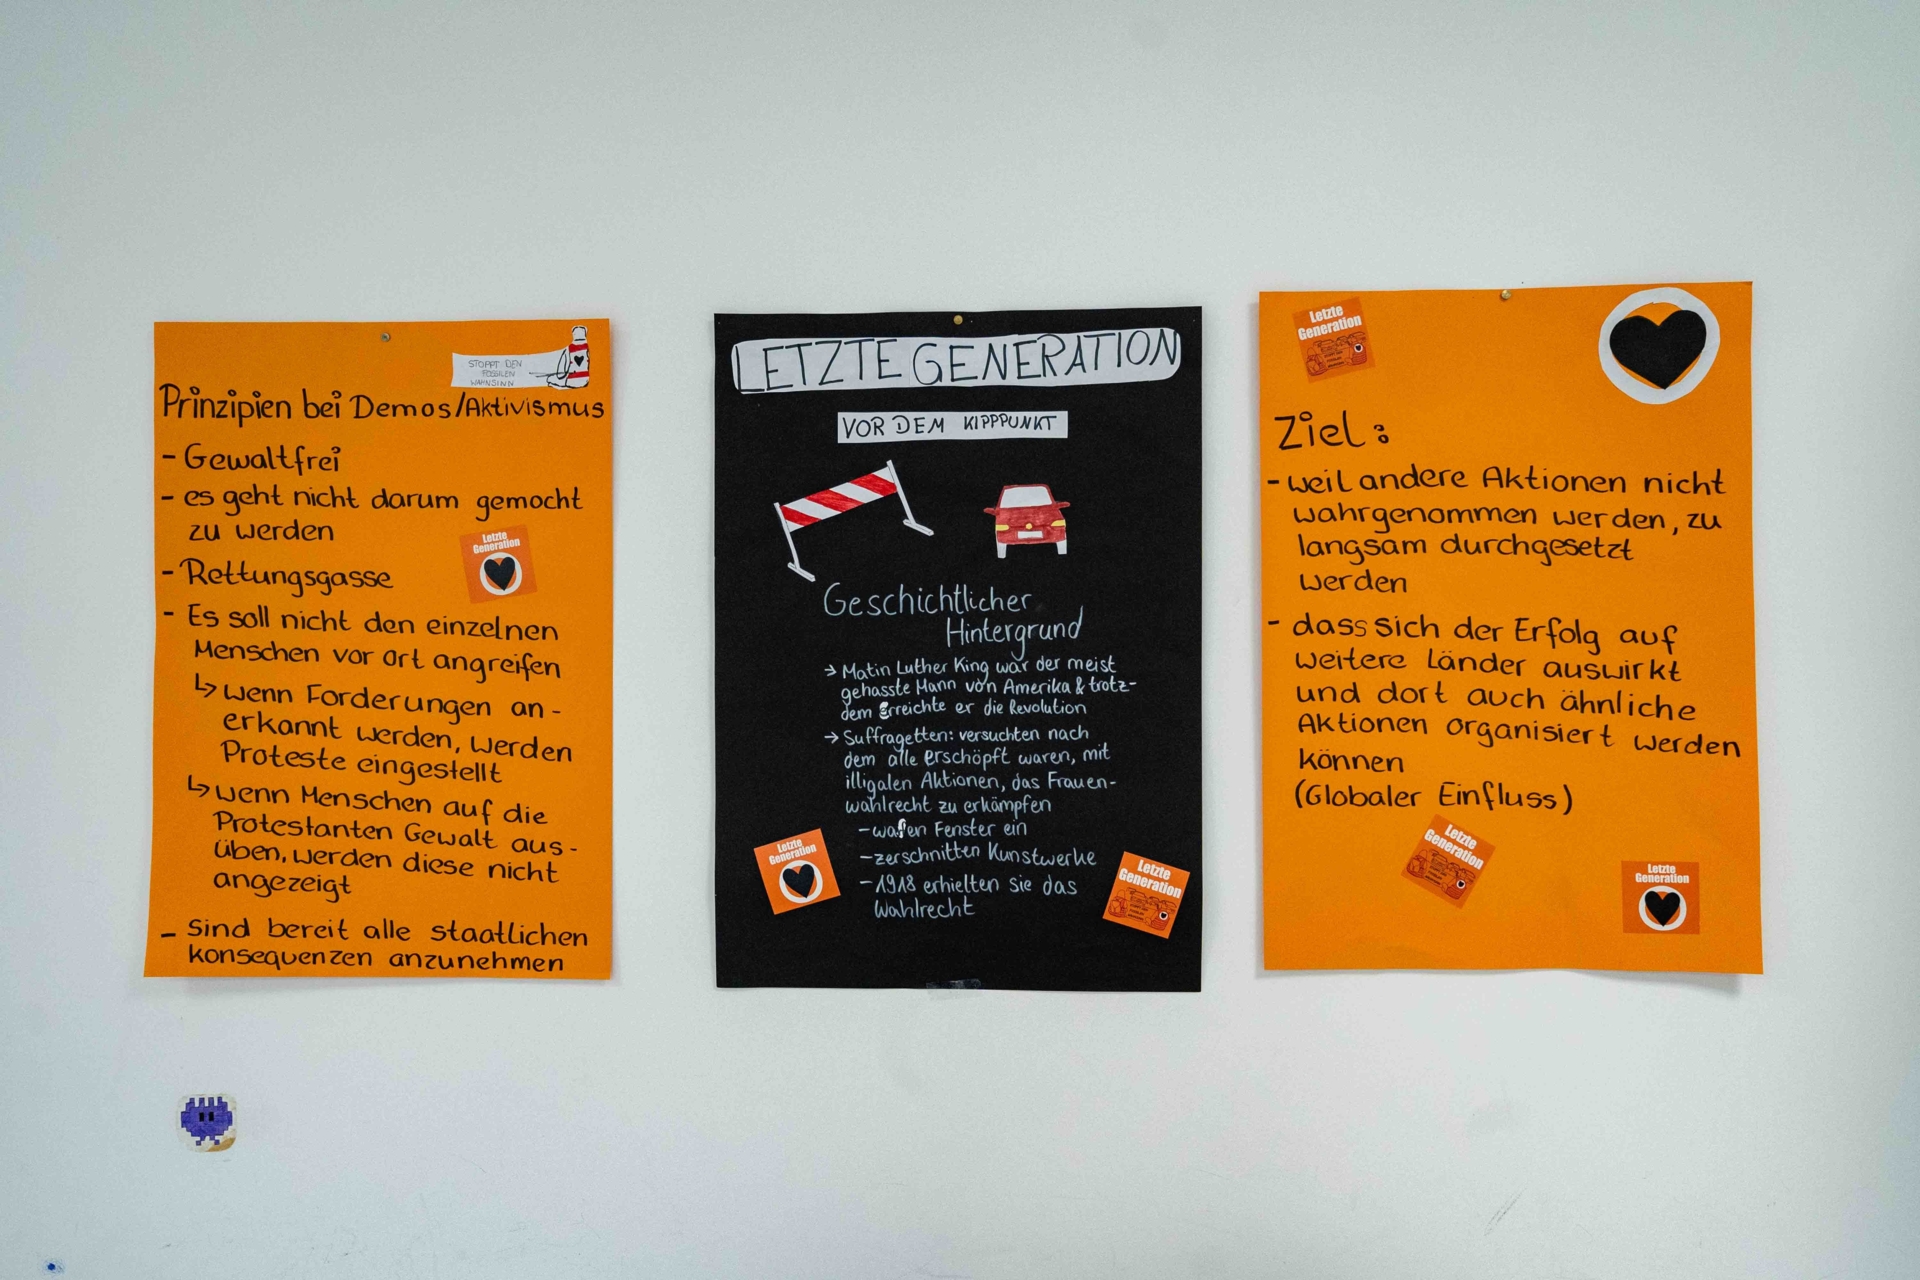 STOPPT DEN
FOSSILEN
WAHNSINN
Prinzipien bei Demos/Aktivismus
- Gewaltfrei
- es geht nicht darum gemocht
zu werden
Letzte
Generation
- Rettungsgasse
- Es soll nicht den einzelnen
Menschen vor Ort angreifen
↳ wenn Forderungen an-
erkannt werden, werden
Proteste eingestellt
↳ wenn Menschen auf die
Protestanten Gewalt aus-
üben, werden diese nicht
angezeigt
- Sind bereit alle staatlichen
konsequenzen anzunehmen
LETZTE GENERATION
VOR DEM KIPPPUNKT
Geschichtlicher
Hintergrund
→ Matin Luther King war der meist
gehasste Mann von Amerika & trotz-
dem erreichte er die Revolution
→ Suffragetten: versuchten nach
dem alle erschöpft waren, mit
illigalen Aktionen, das Frauen-
wahlrecht zu erkämpfen
- wafen Fenster ein
- zerschnitten Kunstwerke
- 1918 erhielten sie das
Wahlrecht
Letzte
Generation
Letzte
Generation
Letzte
Generation
Ziel:
- weil andere Aktionen nicht
wahrgenommen werden, zu
langsam durchgesetzt
werden
- dass sich der Erfolg auf
weitere Länder auswirkt
und dort auch ähnliche
Aktionen organisiert werden
können
(Globaler Einfluss)
Letzte
Generation
Letzte
Generation